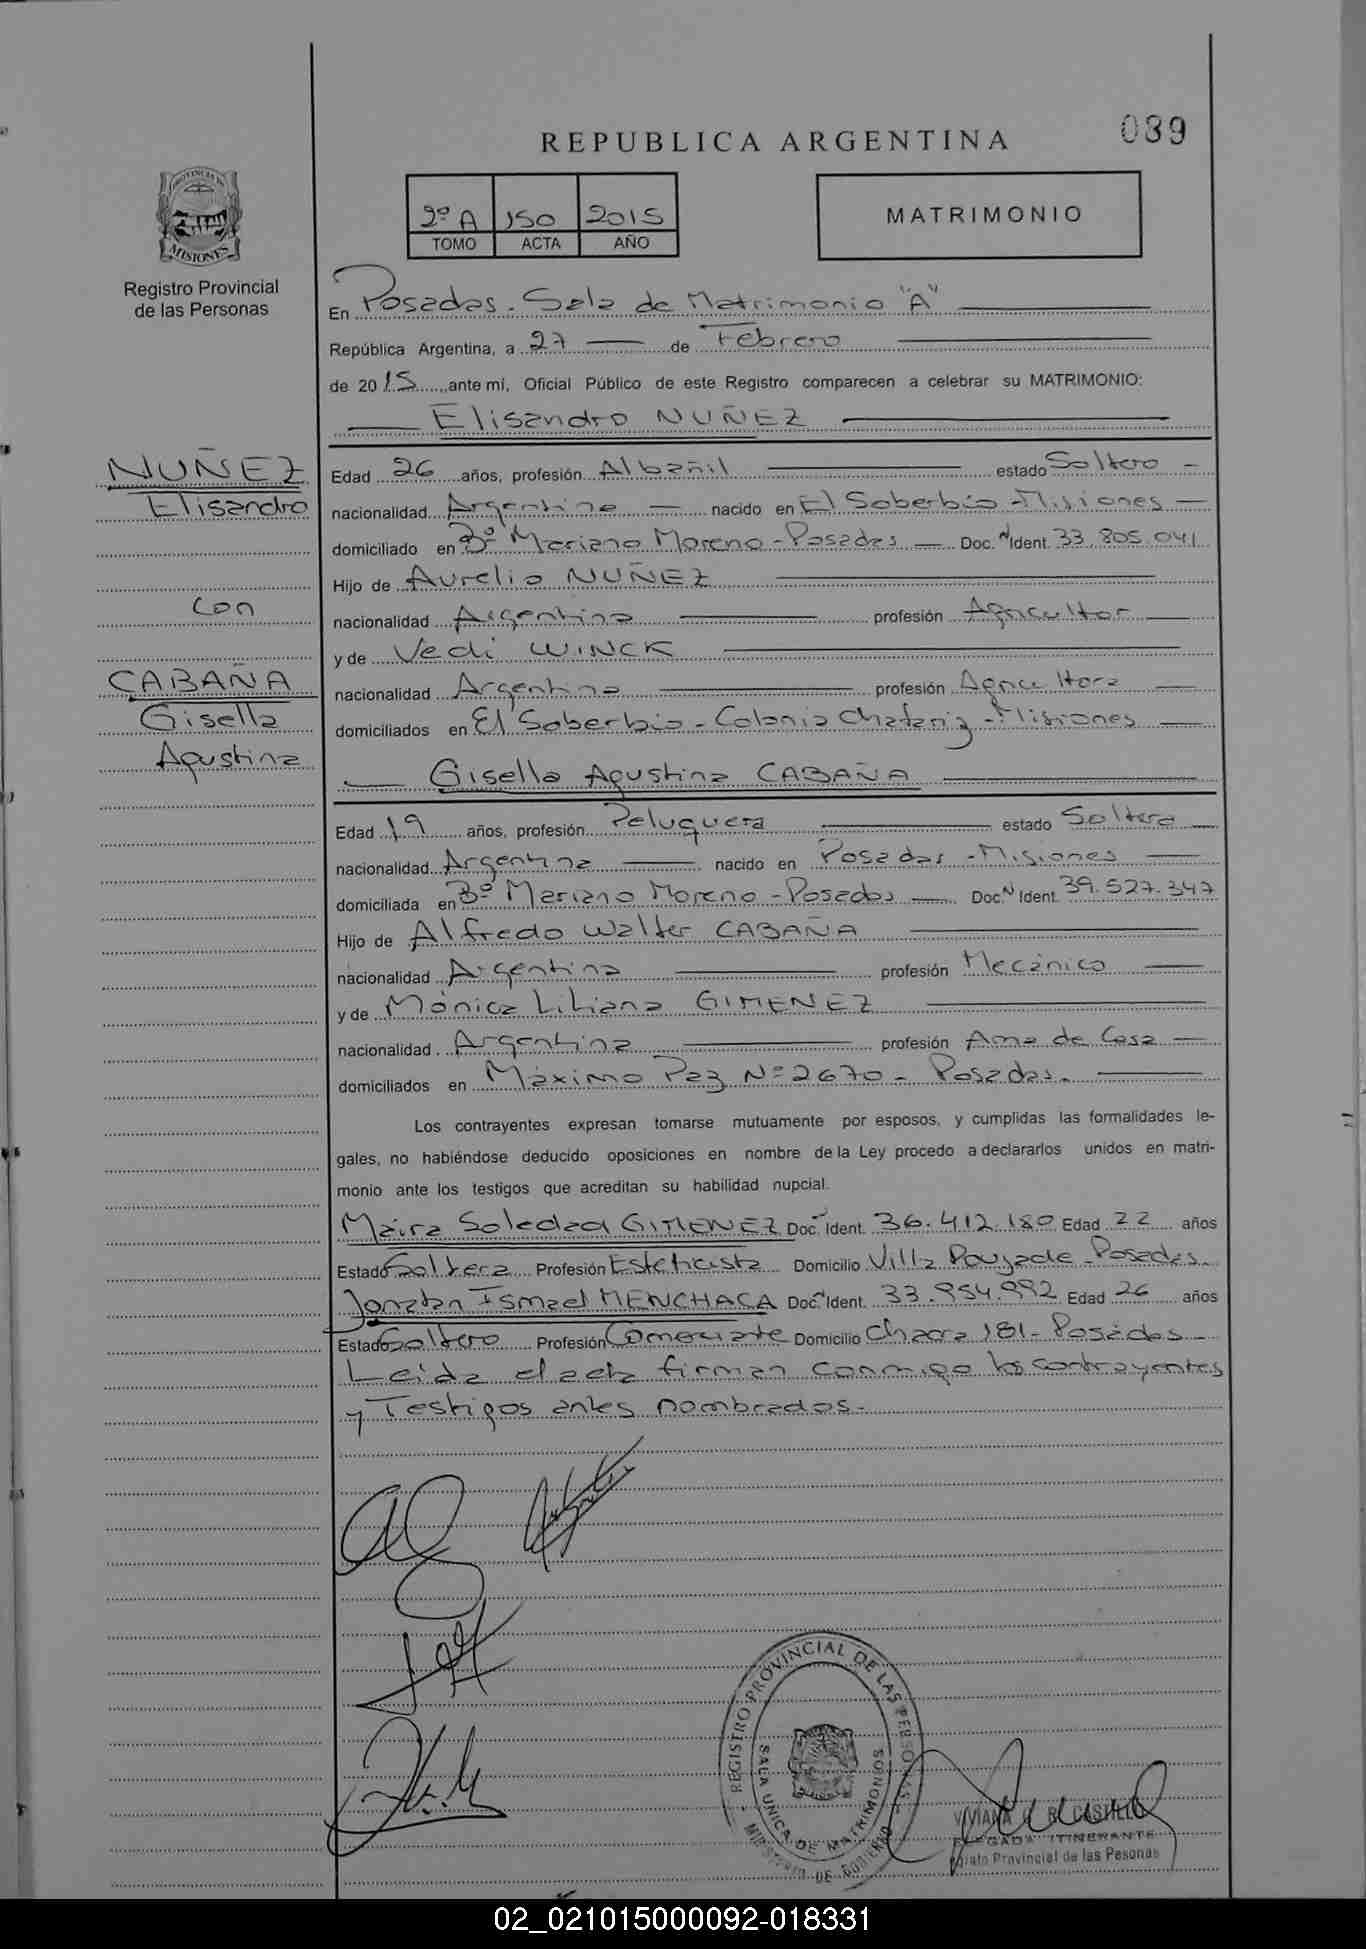 REPUBLICA ARGENTINA
039
PROVINCIA DE
MISIONES
Registro Provincial
de las Personas
2º A 150 2015
TOMO ACTA AÑO
MATRIMONIO
En Posadas - Sala de Matrimonio "A"
República Argentina, a 27 de Febrero
de 2015 ante mi, Oficial Público de este Registro comparecen a celebrar su MATRIMONIO:
Elisandro NUÑEZ
NUÑEZ
Elisandro
con
CABAÑA
Gisella
Agustina
Edad 26 años, profesión Albañil estado Soltero
nacionalidad Argentina nacido en El Soberbio - Misiones
domiciliado en Bº Mariano Moreno - Posadas Doc. N Ident. 33.805.041
Hijo de Aurelio NUÑEZ
nacionalidad Argentina profesión Agricultor
y de Vedi WINCK
nacionalidad Argentina profesión Agricultora
domiciliados en El Soberbio - Colonia - Misiones
Gisella Agustina CABAÑA
Edad 19 años, profesión Peluquera estado Soltera
nacionalidad Argentina nacido en Posadas - Misiones
domiciliada en Bº Mariano Moreno - Posadas Doc. N Ident. 39.527.347
Hijo de Alfredo Walter CABAÑA
nacionalidad Argentina profesión Mecánico
y de Mónica Liliana GIMENEZ
nacionalidad Argentina profesión Ama de Casa
domiciliados en Máximo Paz Nº 2670 - Posadas.
Los contrayentes expresan tomarse mutuamente por esposos, y cumplidas las formalidades le-
gales, no habiéndose deducido oposiciones en nombre de la Ley procedo a declararlos unidos en matri-
monio ante los testigos que acreditan su habilidad nupcial.
Maira Soledad GIMENEZ Doc. Ident. 36.412.180 Edad 22 años
Estado Soltera Profesión Esteticista Domicilio Villa Poujade - Posadas.
Jonatan Ismael MENCHACA Doc. N Ident. 33.954.992 Edad 26 años
Estado Soltero Profesión Comerciante Domicilio Chacra 181 - Posadas
Leida el acta firman conmigo los contrayentes
y Testigos antes nombrados.-
REGISTRO PROVINCIAL DE LAS PERSONAS
SALA UNICA DE MATRIMONIOS
MINISTERIO DE GOBIERNO
VIVIANA R. CASTILLO
DELEGADA ITINERANTE
Provincial de las Pesonas
02_021015000092-018331